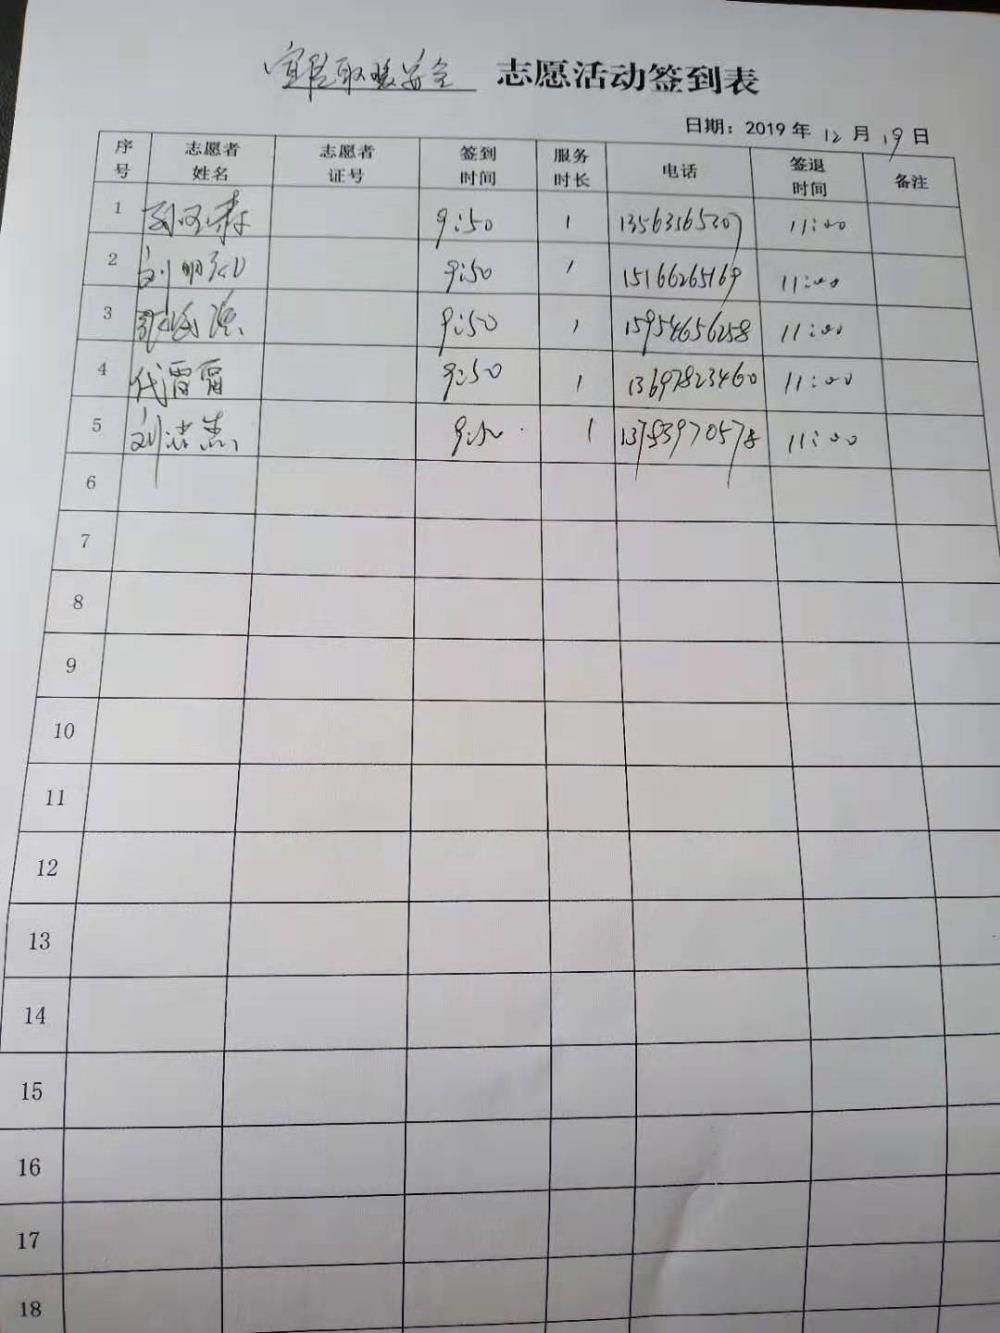 取暖安全 志愿活动签到表
日期：2019 年 12 月 19 日
序号 志愿者姓名 志愿者证号 签到时间 服务时长 电话 签退时间 备注
1 9:50 1 13563165207 11:00
2 刘明 9:50 1 15166265169 11:00
3 9:50 1 15954656258 11:00
4 代雷雷 9:50 1 13697823460 11:00
5 刘洁 9:50 1 13793970578 11:00
6
7
8
9
10
11
12
13
14
15
16
17
18